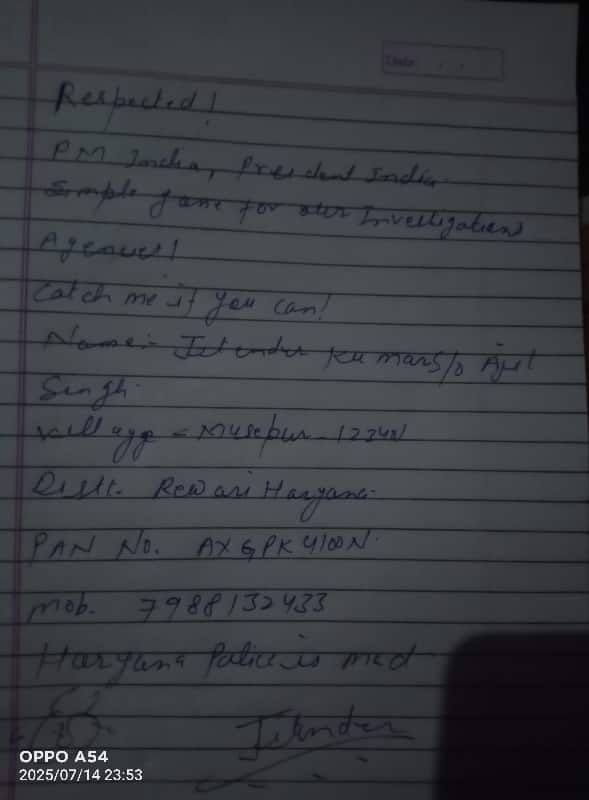 Date
Respected!
PM India, President India.
Simple game for our Investigation
Agencies!
Catch me if you can!
Name:- Jitender Kumar S/o Ajit
Singh.
Village - Musepur - 123401
Distt. Rewari Haryana.
PAN No. AXGPK4100N.
Mob. 7988132433
Haryana Police is mad
Jitender
OPPO A54
2025/07/14 23:53